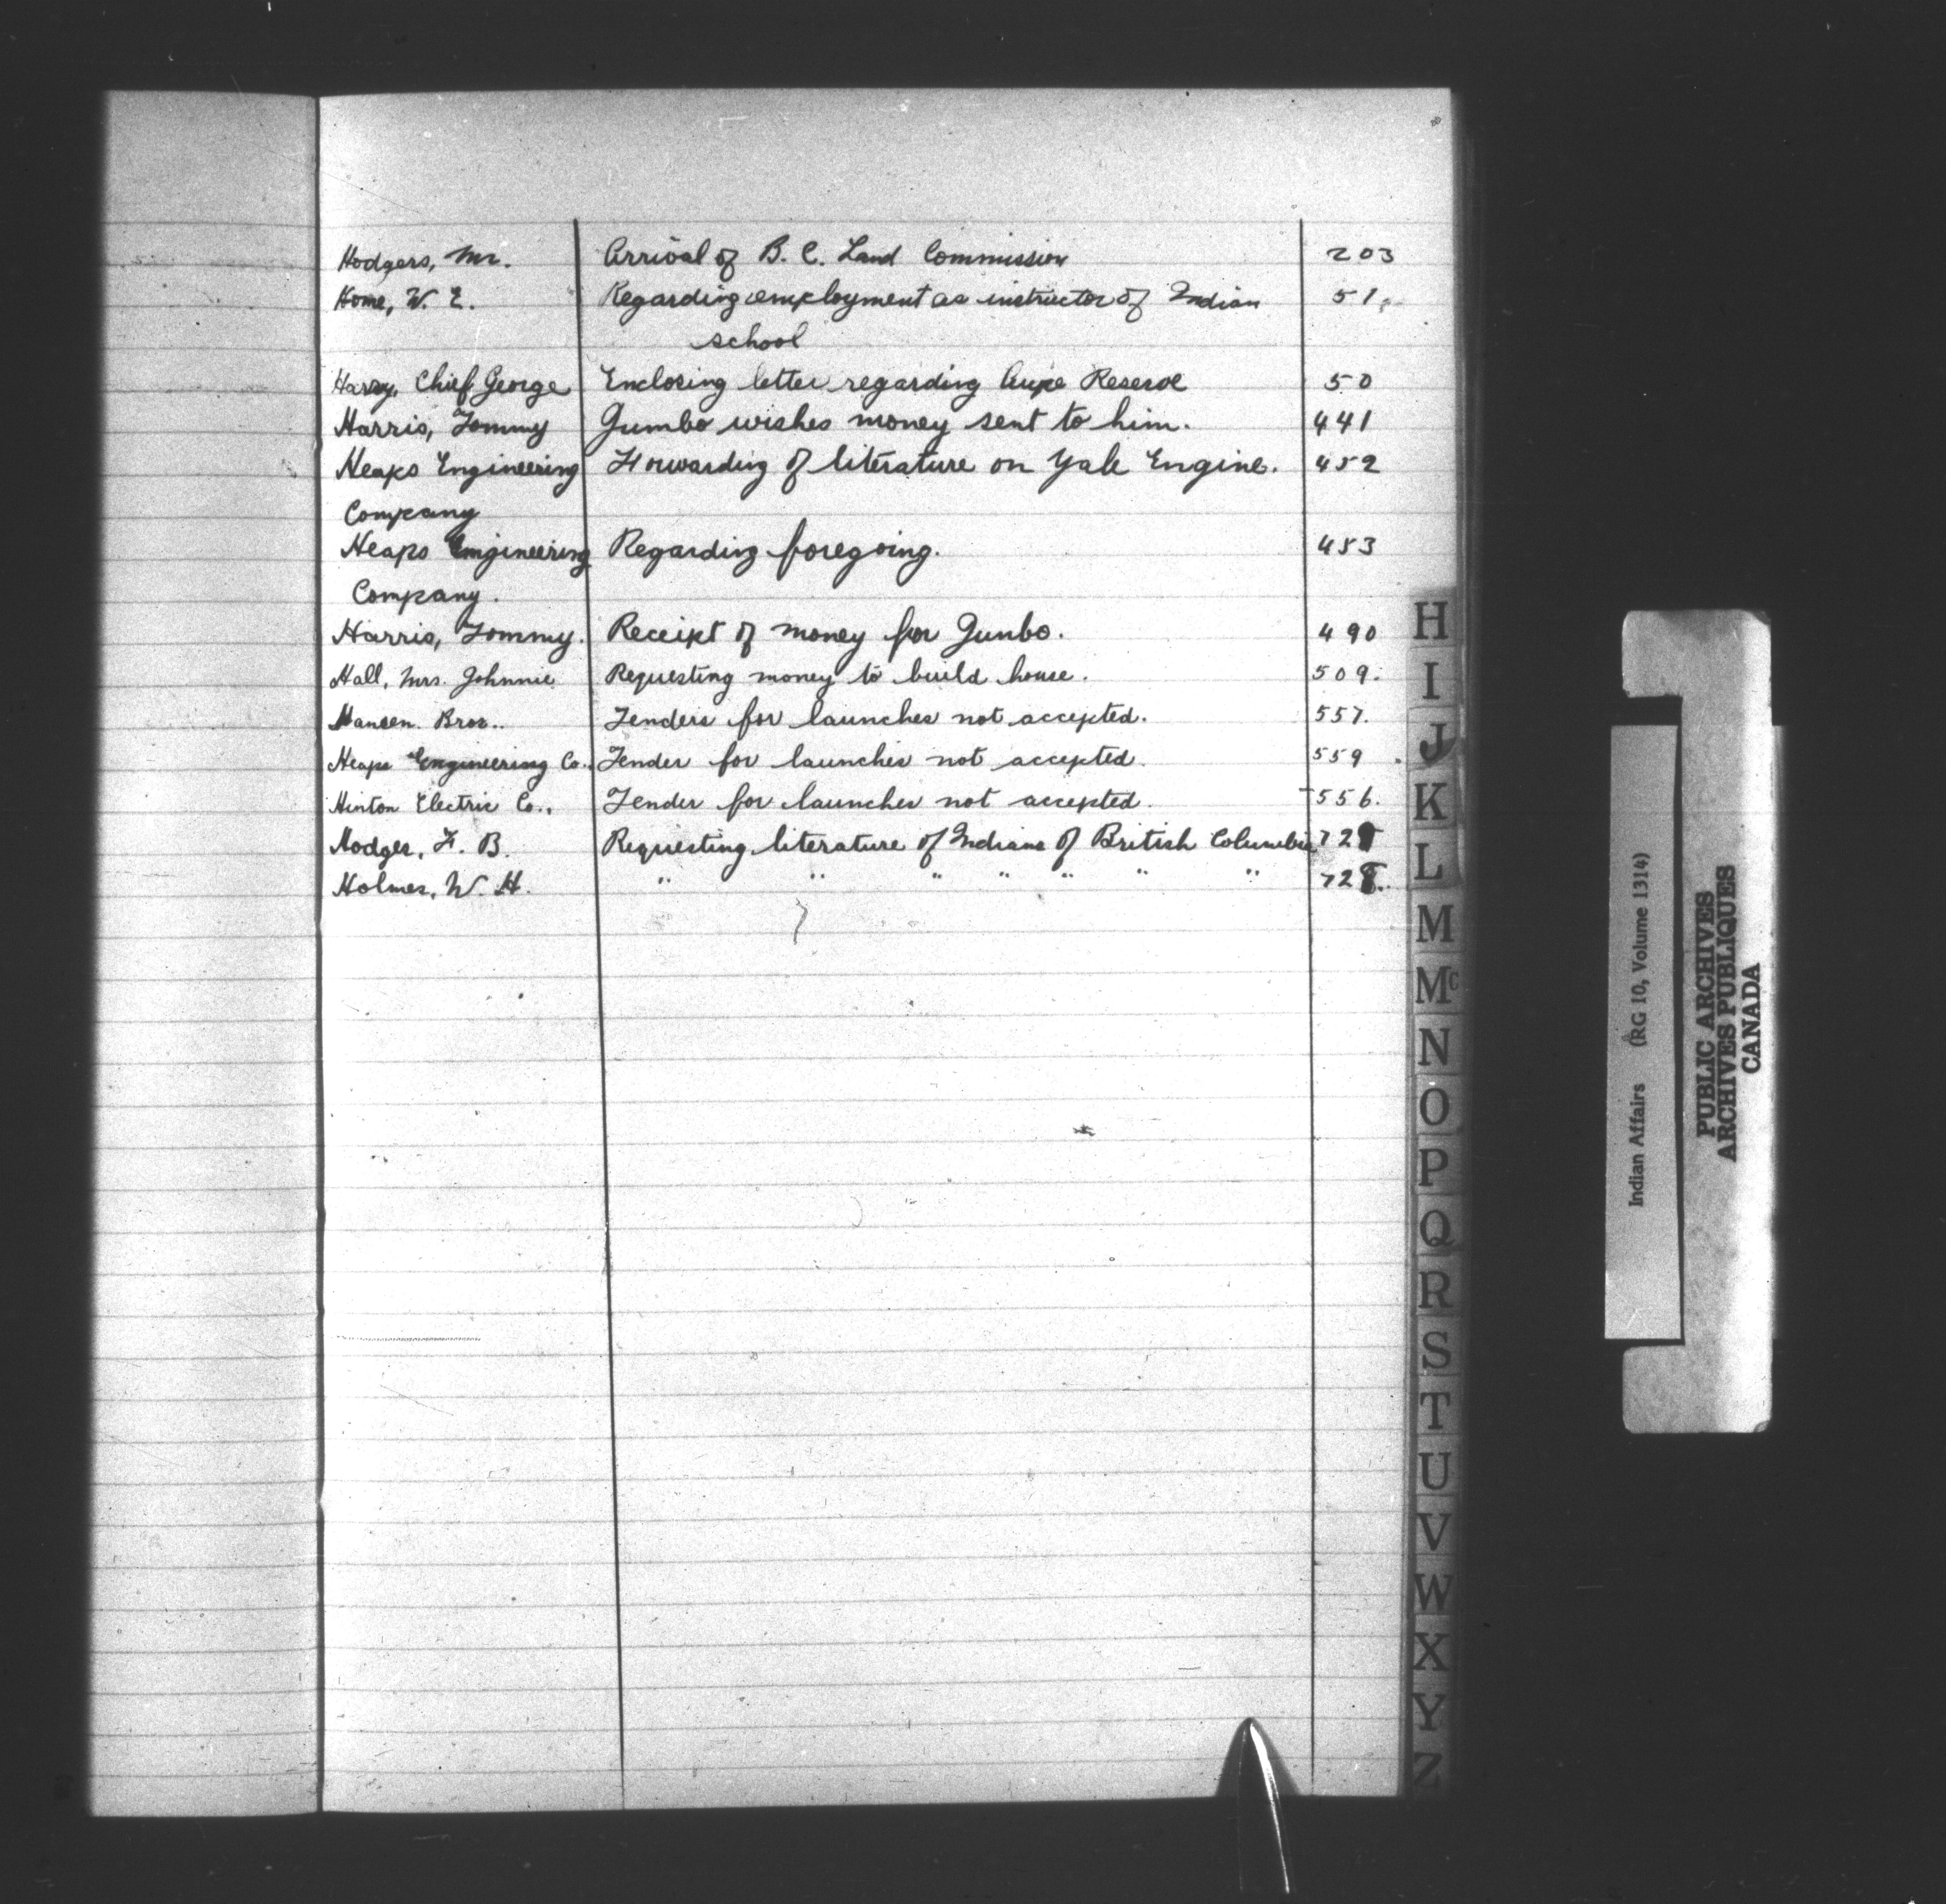 Hodgers, Mr. Arrival of B. C. Land Commission 203
Home, W. E. Regarding employment as instructor of Indian 51
school
Harry, Chief George Enclosing letter regarding Aupe Reserve 50
Harris, Tommy Jumbo wishes money sent to him. 441
Heaps Engineering Forwarding of literature on Yale Engine. 452
Company
Heaps Engineering Regarding foregoing. 453
Company.
Harris, Tommy. Receipt of money for Junbo. 490
Hall, Mrs. Johnnie Requesting money to build house. 509.
Hansen Bros.. Tenders for launches not accepted. 557.
Heaps Engineering Co., Tender for launches not accepted. 559
Hinton Electric Co., Tender for launches not accepted. 556.
Hodges, F. B. Requesting literature of Indians of British Columbia
Holmes, W. H. " " " " " " " 728.
H
I
J
K
L
M
Mc
N
O
P
Q
R
S
T
U
V
W
X
Y
Z
Indian Affairs (RG 10, Volume 1314)
PUBLIC ARCHIVES
ARCHIVES PUBLIQUES
CANADA